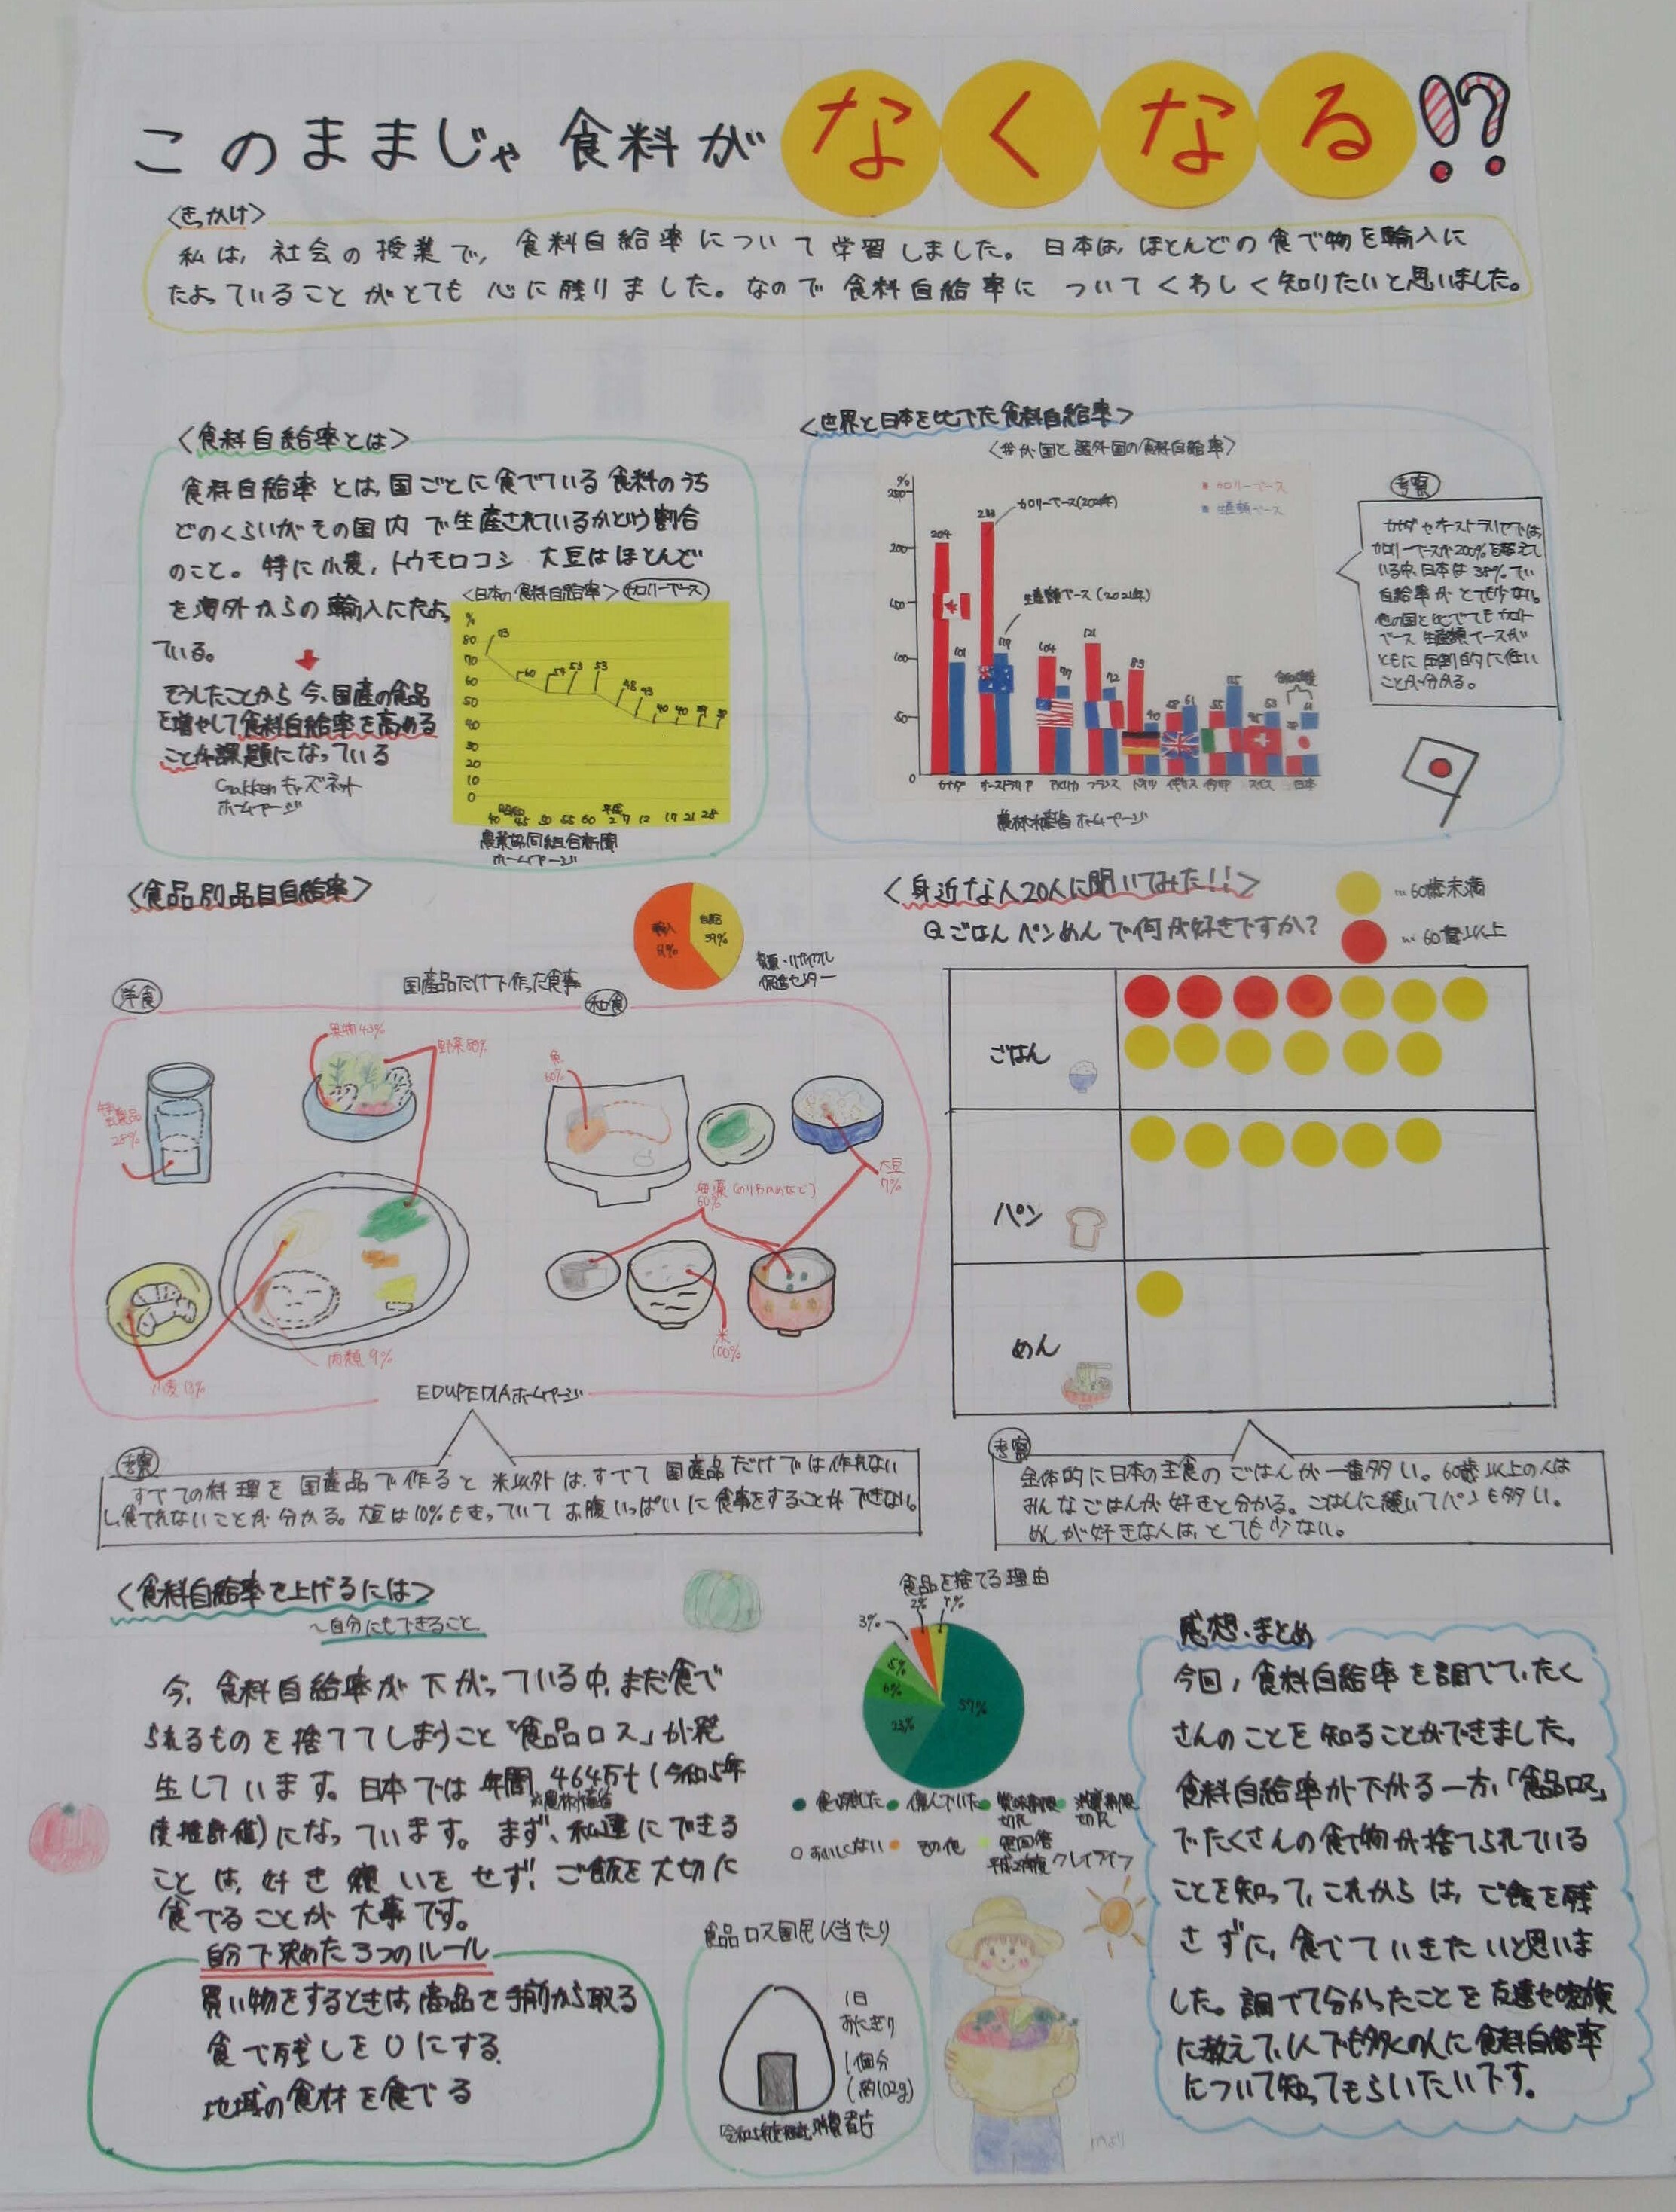 このままじゃ食料がなくなる!?
〈きっかけ〉
私は、社会の授業で、食料自給率について学習しました。日本は、ほとんどの食べ物を輸入に
たよっていることがとても心に残りました。なので食料自給率についてくわしく知りたいと思いました。
〈食料自給率とは〉
食料自給率とは、国ごとに食べている食料のうち
どのくらいがその国内で生産されているかという割合
のこと。特に小麦,トウモロコシ 大豆はほとんど
を海外からの輸入にたよっ
ている。
そうしたことから今、国産の食品
を増やして食料自給率を高める
ことが課題になっている
Gakkenキッズネット
ホームページ
〈日本の食料自給率〉カロリーベース
%
80
70
60
50
40
30
20
10
0
73
60
54
53
53
48
43
40
40
39
昭和
平成
40 45 50 55 60 2 7 12 17 21 28
農業協同組合新聞
ホームページ
〈世界と日本を比べた食料自給率〉
〈我が国と諸外国の食料自給率〉
%
250
200
150
100
50
0
カロリーベース
生産額ベース
カロリーベース(2021年)
生産額ベース(2021年)
204
101
233
104
121
72
83
40
61
55
53
61
カナダ オーストラリア アメリカ フランス ドイツ イギリス イタリア スイス 日本
農林水産省ホームページ
考察
カナダやオーストラリアでは、
カロリーベースが200%を超えて
いる中、日本は38%でい
自給率がとても少ない。
他の国と比べてもカロリー
ベース 生産額ベースが
ともに圧倒的に低い
ことが分かる。
〈食品別品目自給率〉
輸入
自給
39%
国産品だけで作った食事
洋食
和食
果物43%
野菜80%
28%
肉類9%
小麦13%
魚
60%
海藻(のりわかめなど)
60%
大豆
7%
米
100%
EDUPEDIAホームページ
考察
すべての料理を国産品で作ると米以外は、すべて国産品だけでは作れない
し食べれないことが分かる。大豆は10%もきっていてお腹いっぱいに食事をすることができない。
〈身近な人20人に聞いてみた!!〉
Qごはん パンめんで何が好きですか?
…60歳未満
…60歳以上
ごはん
パン
めん
考察
全体的に日本の主食のごはんが一番多い。60歳以上の人は
みんなごはんが好きと分かる。ごはんに続いてパンも多い。
めんが好きな人は、とても少ない。
〈食料自給率を上げるには〉
~自分にもできること
今、食料自給率が下がっている中、まだ食べ
られるものを捨ててしまうこと「食品ロス」が発
生しています。日本では年間464万t(令和5年
※農林水産省
度推計値)になっています。まず、私達にできる
ことは、好き嫌いをせず、ご飯を大切に
食べることが大事です。
自分で決めた3つのルール
買い物をするときは、商品を手前から取る
食べ残しを0にする
地域の食材を食べる
食品を捨てる理由
3%
2%
4%
5%
6%
23%
57%
食べ残した 傷んでいた 賞味期限切れ 消費期限切れ
おいしくない その他 無回答
食品ロス国民1人当たり
1日
おにぎり
1個分
(約102g)
感想・まとめ
今回,食料自給率を調べて、たく
さんのことを知ることができました。
食料自給率が下がる一方、「食品ロス」
でたくさんの食べ物が捨てられている
ことを知って、これからは、ご飯を残
さずに、食べていきたいと思いま
した。調べて分かったことを友達や家族
に教えて、1人でも多くの人に食料自給率
について知ってもらいたいです。